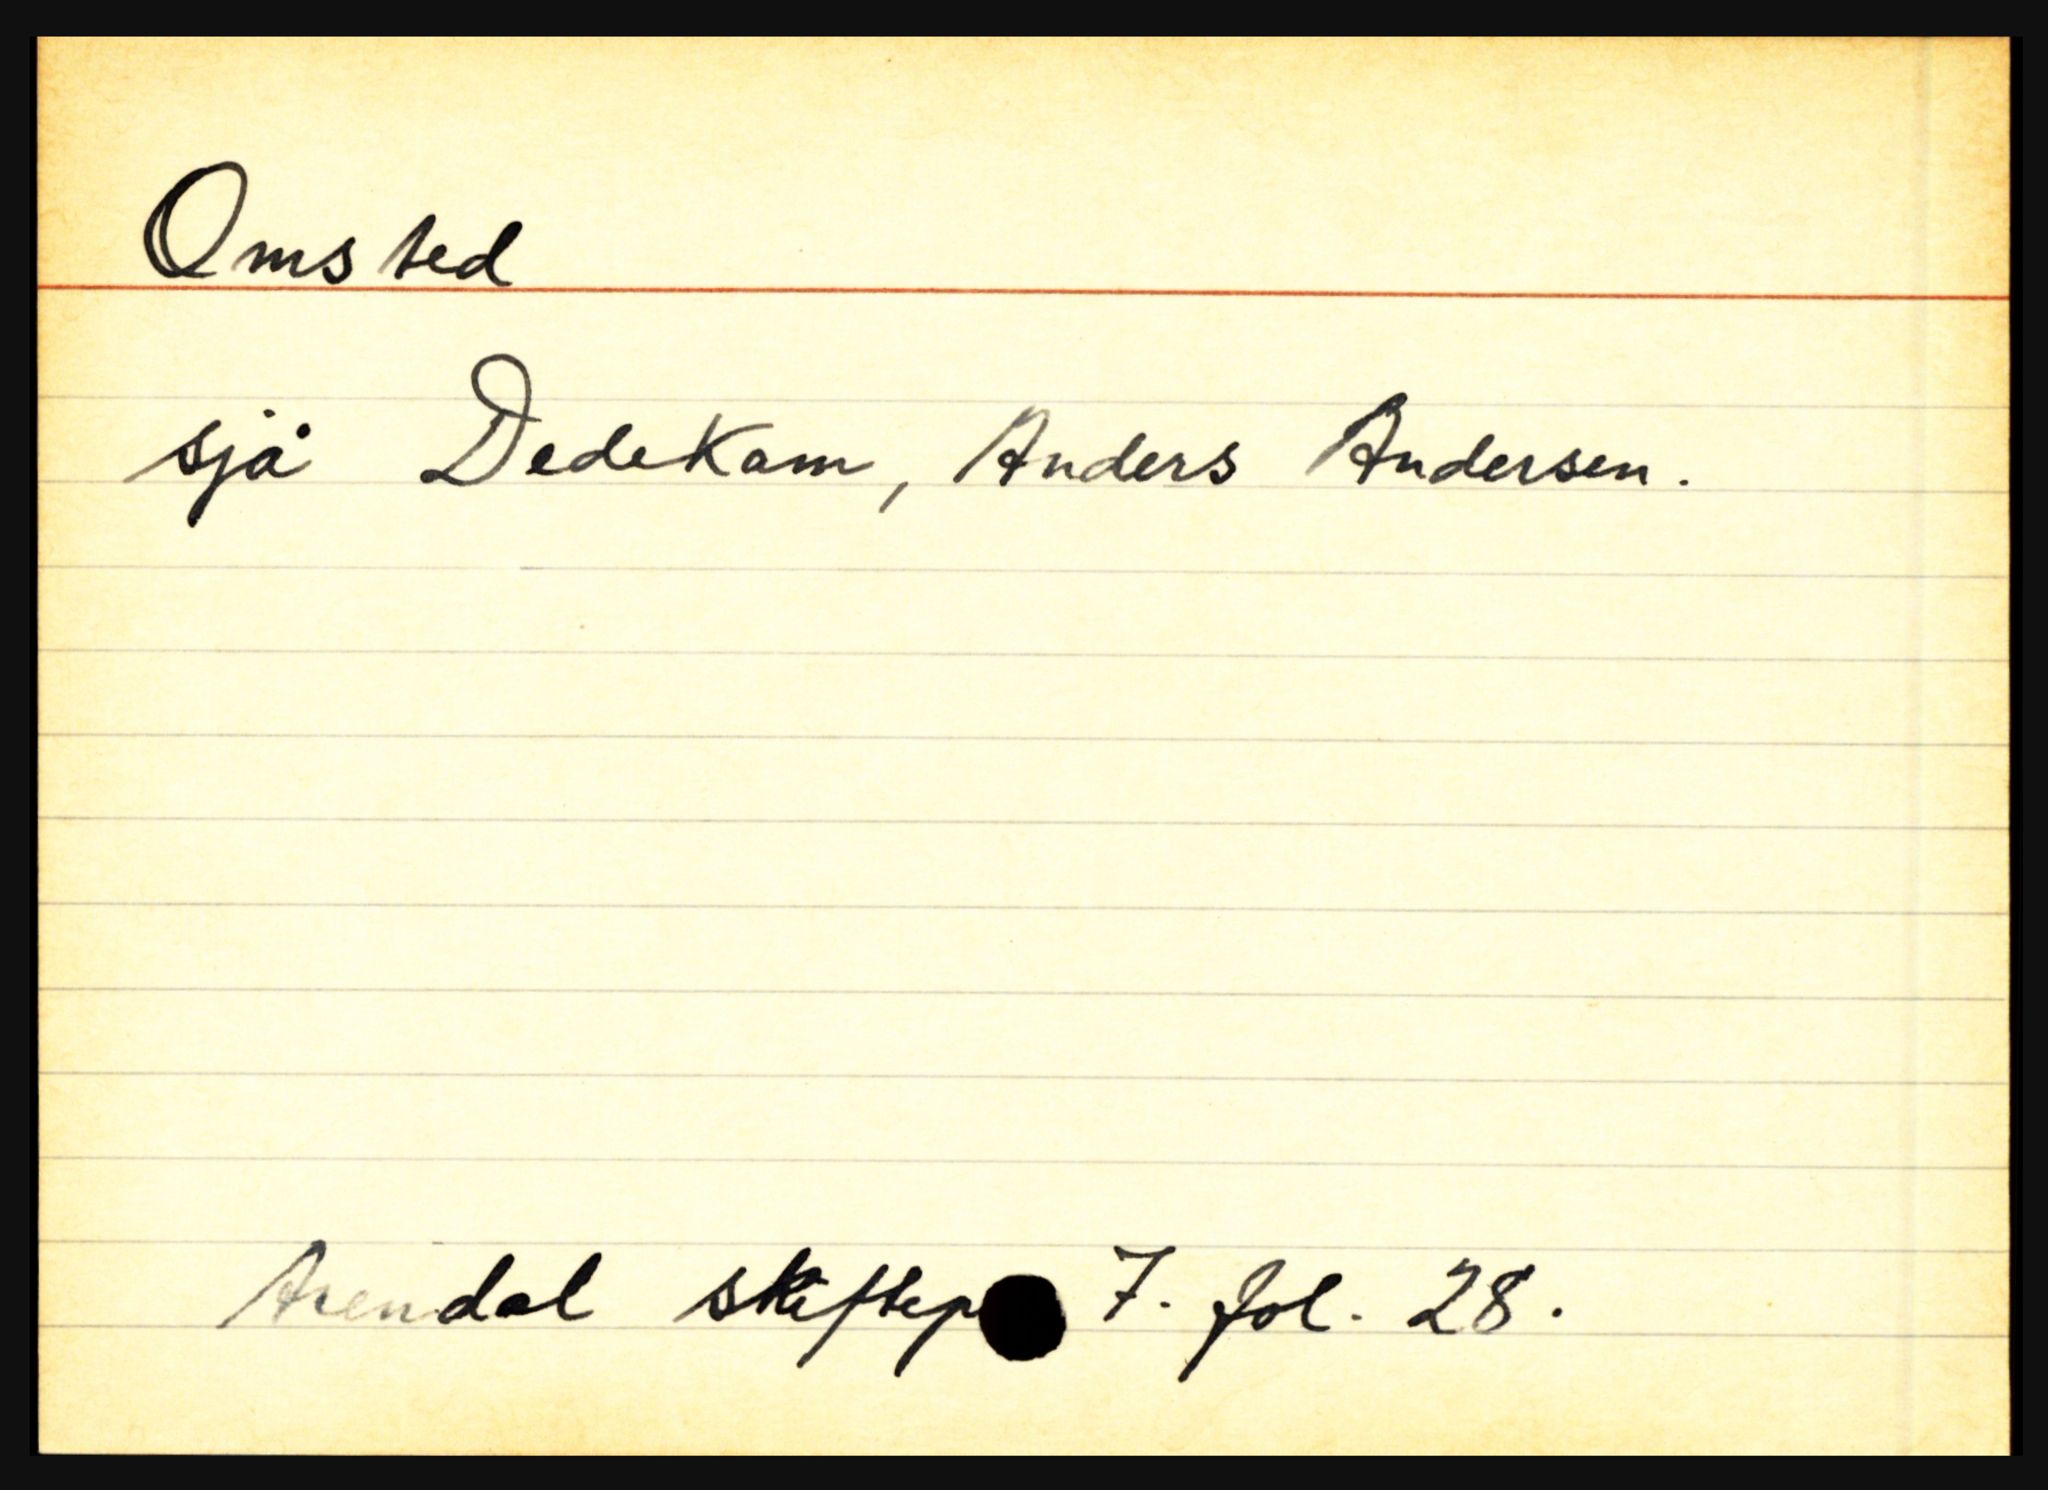 Omsted
sjå Dedekam, Anders Andersen.
Arendal skiftep 7. fol. 28.